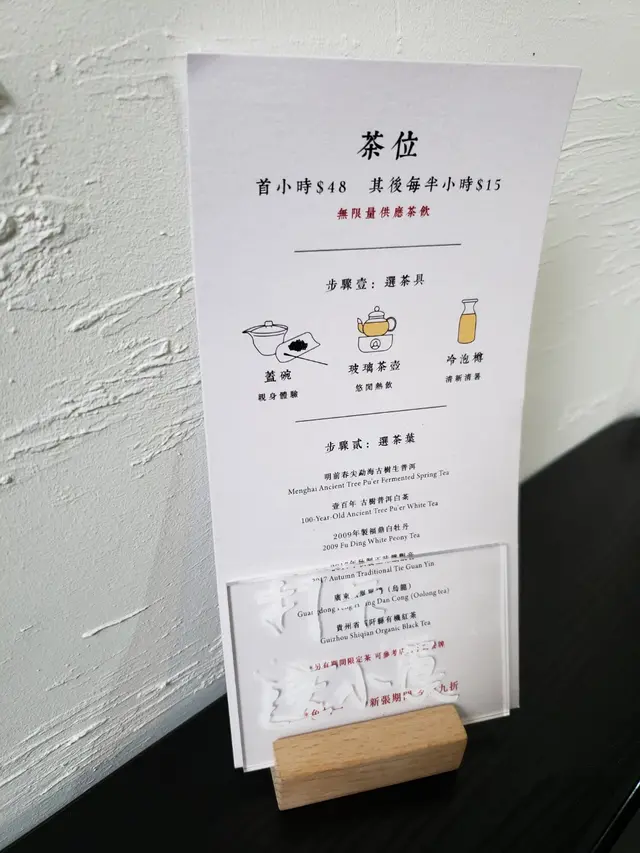 茶位
首小時$48 其後每半小時$15
無限量供應茶飲
步驟壹：選茶具
蓋碗
親身體驗
玻璃茶壺
悠閒熱飲
冷泡樽
清新清暑
步驟貳：選茶葉
明前春尖勐海古樹生普洱
Menghai Ancient Tree Pu'er Fermented Spring Tea
壹百年 古樹普洱白茶
100-Year-Old Ancient Tree Pu'er White Tea
2009年製福鼎白牡丹
2009 Fu Ding White Peony Tea
Autumn Traditional Tie Guan Yin
廣東 （烏龍）
Dan Cong (Oolong tea)
貴州省 阡縣有機紅茶
Guizhou Shiqian Organic Black Tea
另有期間限定茶 可參考 牌
新張期間 九折
打卡
送小食